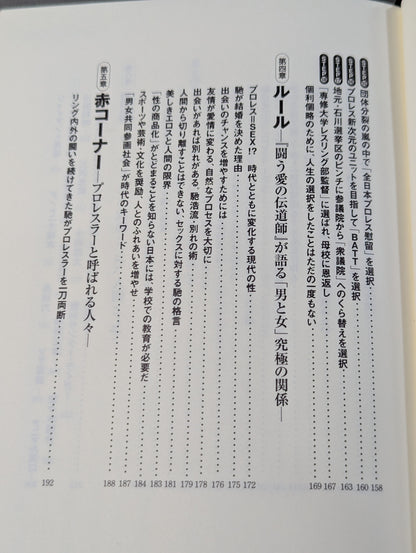 団体分裂の嵐の中で「全日本プロレス慰留」を選択 158
プロレス新次元のユニットを目指して「BATT」を選択 160
地元・石川選挙区のピンチに参議院から「衆議院」へのくら替えを選択 163
「専修大学レスリング部監督」に選ばれ、母校に恩返し 167
個利個略のために、人生の選択をしたことはただの一度もない 169
第四章 ルール―『闘う愛の伝道師』が語る「男と女」究極の関係―
プロレス=SEX?! 時代とともに変化する現代の性 172
馳が結婚を決めた理由 175
出会いのチャンスを増やすためには 176
友情が愛情に変わる、自然なプロセスを大切に 178
出会いがあれば別れがある。馳浩流・別れの術 179
人間から切り離すことはできない、セックスに対する馳の格言 181
美しきエロスと人間の限界 183
「性の商品化」がとどまることを知らない日本には、学校での教育が必要だ 184
スポーツや芸術・文化を奨励。人とのふれあいを増やせ 187
「男女共同参画社会」が時代のキーワード 188
第五章 赤コーナー―プロレスラーと呼ばれる人々―
リング内外の闘いを続けてきた馳がプロレスラーを一刀両断 192